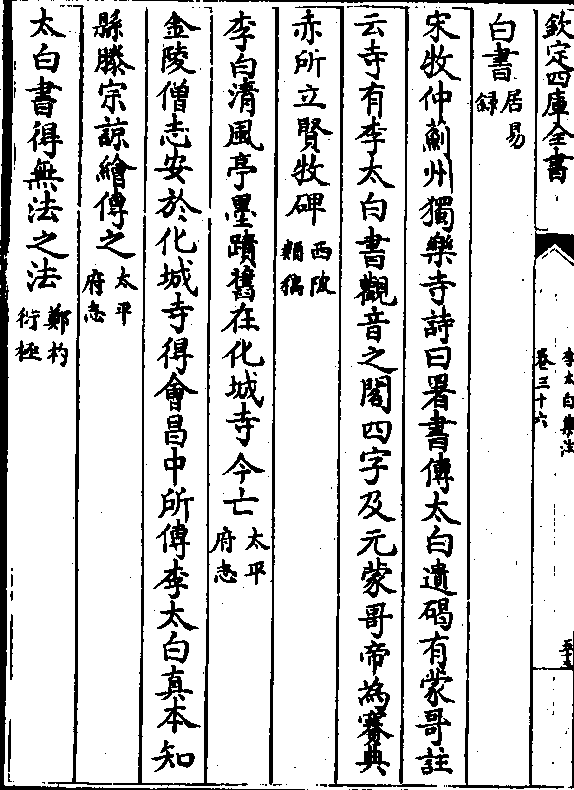 欽定四庫全書
李太白集注
卷三十六
白書居易錄
宋牧仲薊州獨樂寺詩曰署書傳太白遺碣有蒙哥註
云寺有李太白書觀音之閣四字及元蒙哥帝為賽典
赤所立賢牧碑西陂類稿
李白清風亭墨蹟舊在化城寺今亡太平府志
金陵僧志安於化城寺得會昌中所傳李太白真本知
縣滕宗諒繪傳之太平府志
太白書得無法之法鄭杓衍極